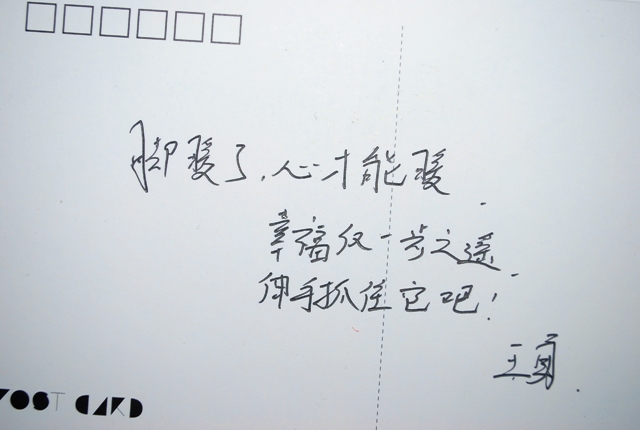 脚暖了,心才能暖.
幸福仅一步之遥.
伸手抓住它吧!
王勇.
POST CARD